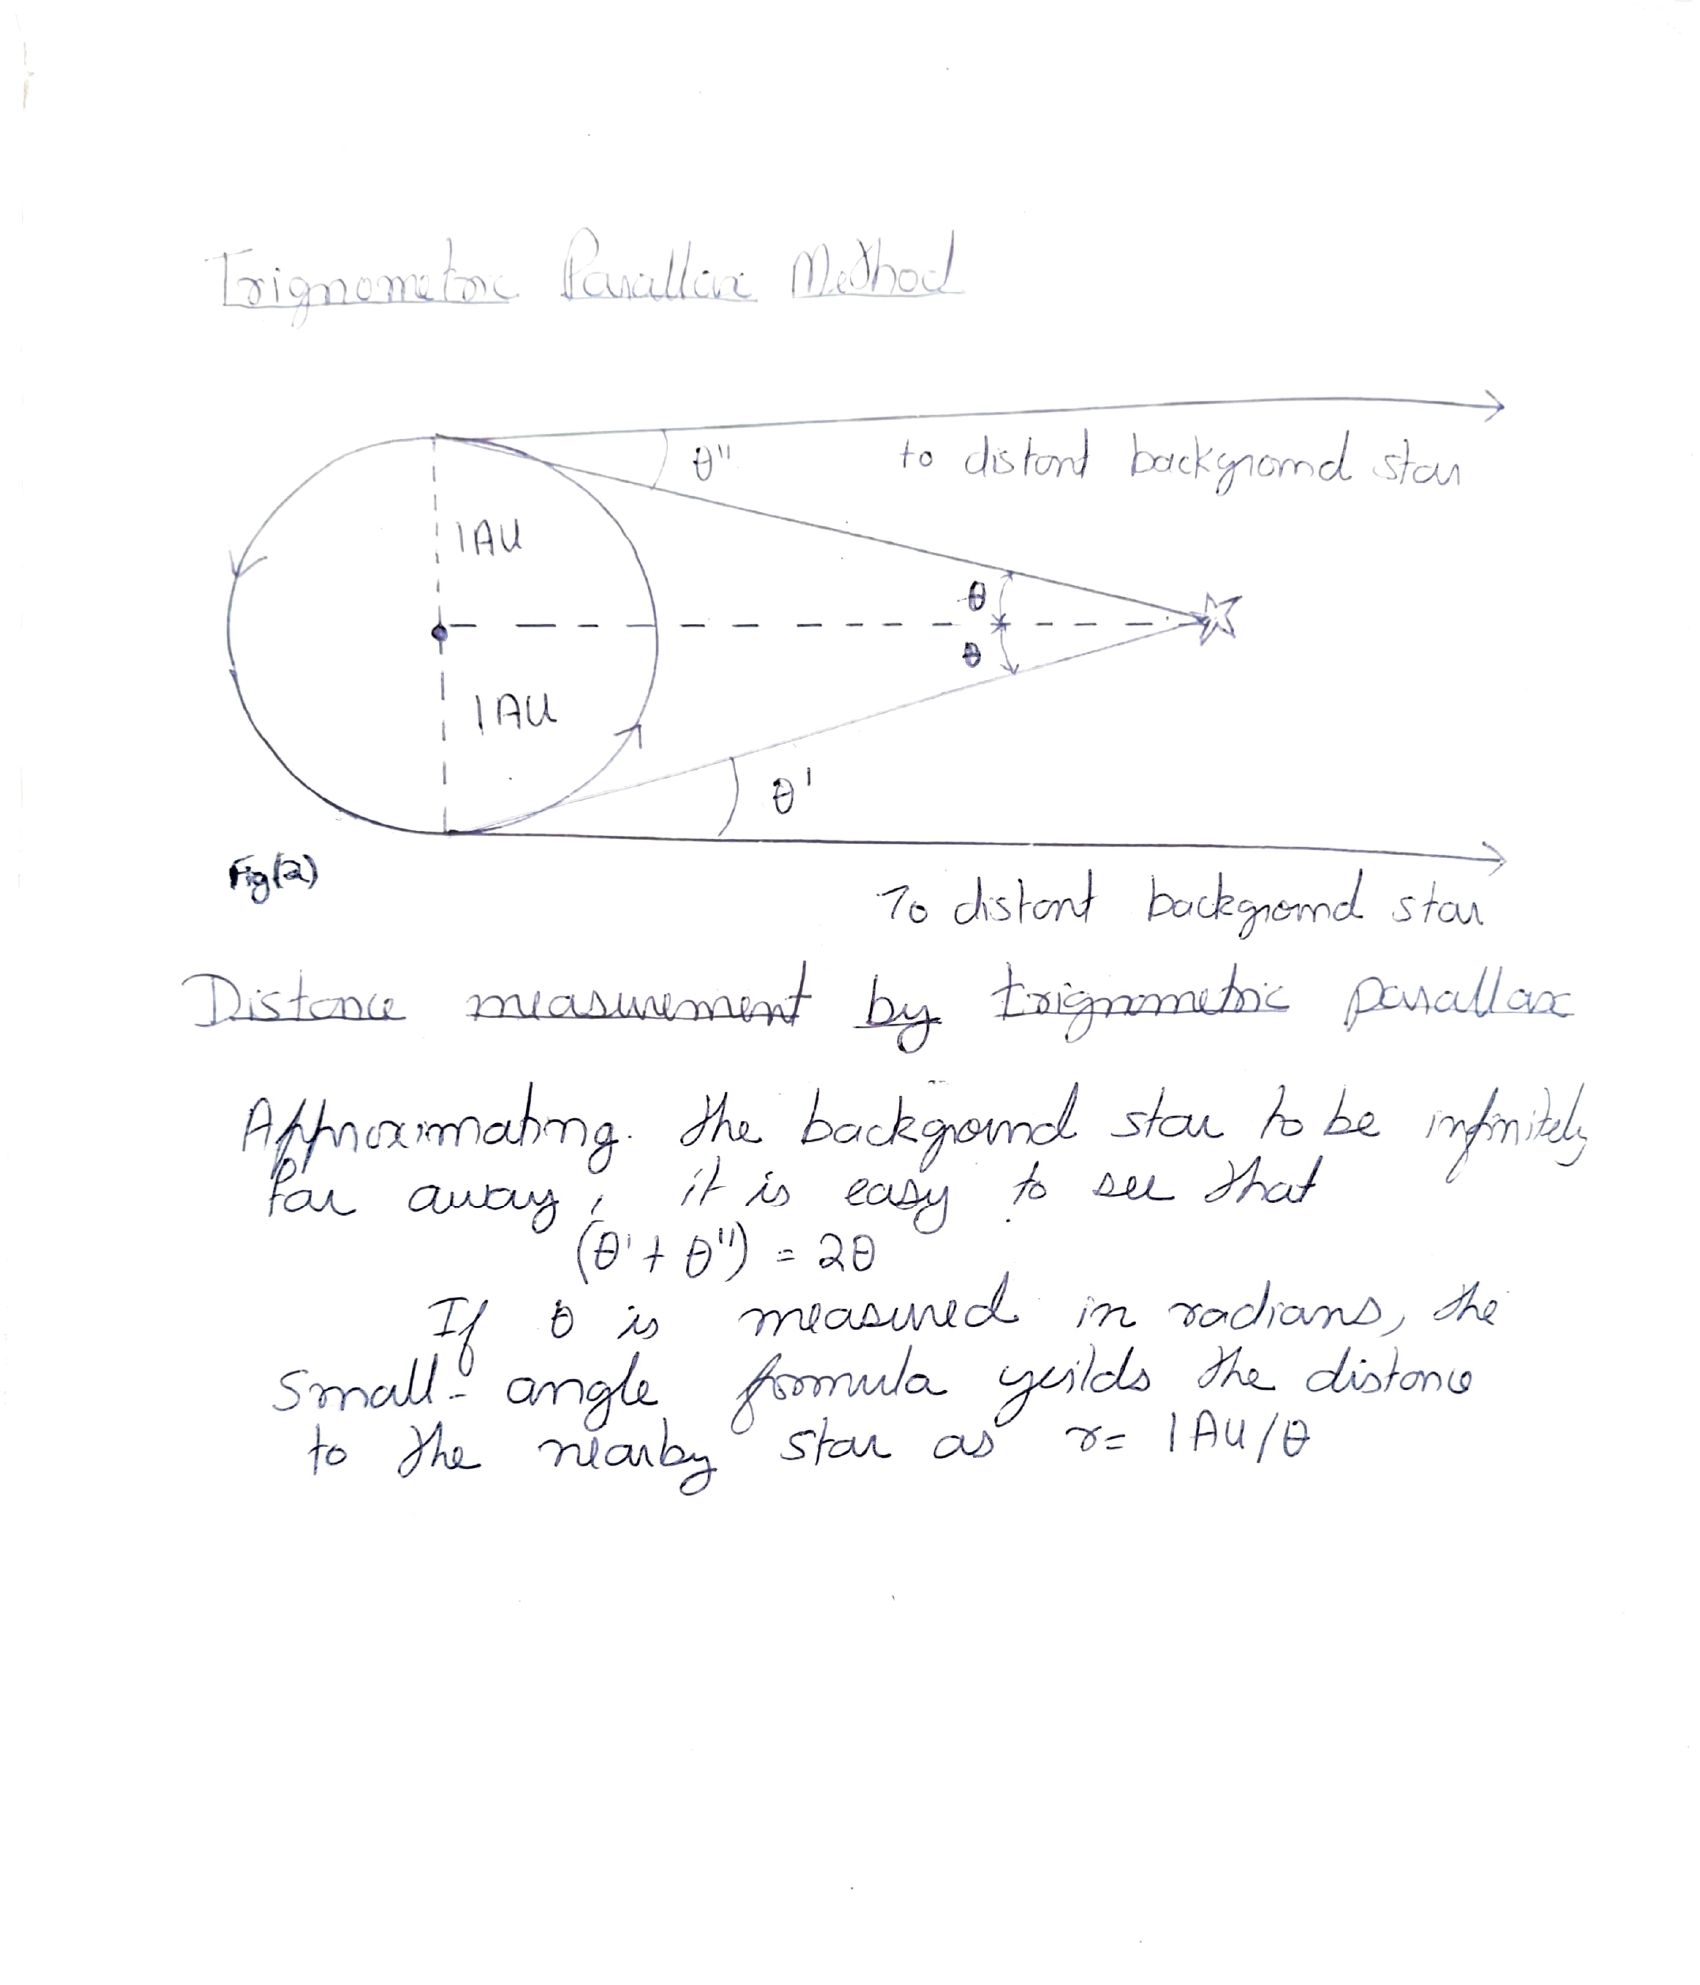 Trignometric Parallax Method
θ"
to distant background star
1AU
θ
θ
1AU
θ'
Fig(a)
To distant background star
Distance measurement by trignometric parallax
Approximating. the background star to be infinitely
far away, it is easy to see that
(θ' + θ") = 2θ
If θ is measured in radians, the
small-angle formula yeilds the distance
to the nearby star as r= 1AU/θ